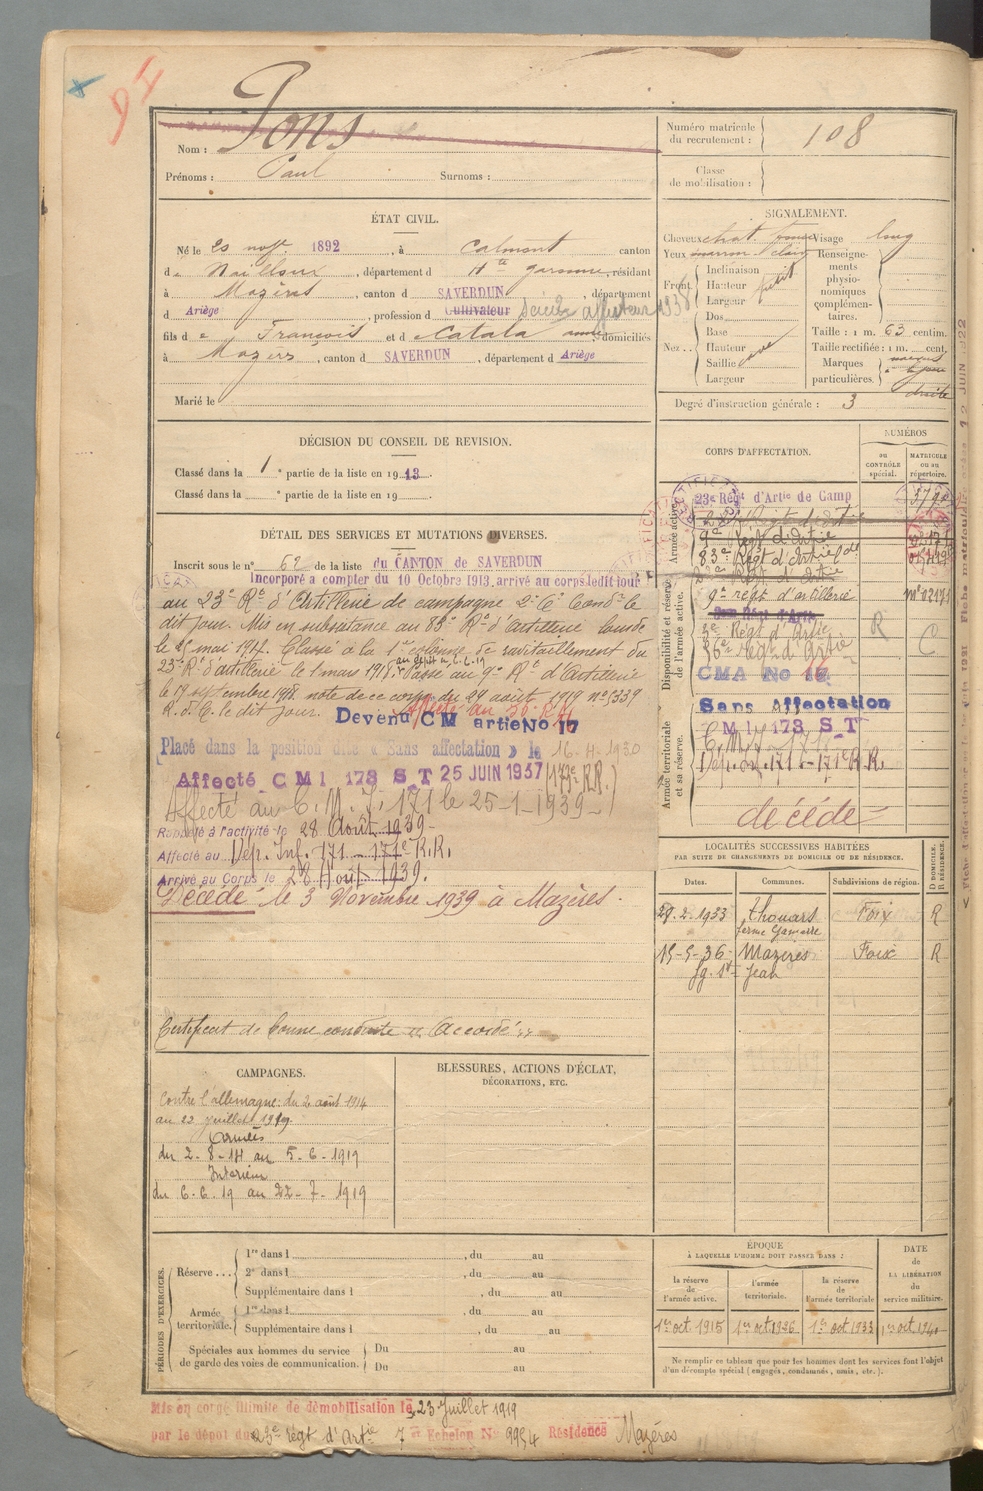 Nom : Pons
Prénoms : Paul Surnoms :
Numéro matricule du recrutement : 108
Classe de mobilisation :
ÉTAT CIVIL.
Né le 20 1892, à Calmont canton
de Nailloux, département d Hte garonne, résidant
à Mazères, canton d SAVERDUN, département
d Ariège, profession d Cultivateur affuteur 1938
fils de François et de Catala domiciliés
à Mazères, canton d SAVERDUN, département d Ariège
Marié le
SIGNALEMENT.
Cheveux chat. Visage long
Yeux marron clair
Front Inclinaison
Hauteur petit
Largeur
Nez Dos
Base
Hauteur
Saillie
Largeur
Renseignements physionomiques complémentaires.
Taille : 1 m. 63 centim.
Taille rectifiée : 1 m. cent.
Marques particulières. droite
Degré d'instruction générale : 3
DÉCISION DU CONSEIL DE REVISION.
Classé dans la 1e partie de la liste en 1913.
Classé dans la e partie de la liste en 19
DÉTAIL DES SERVICES ET MUTATIONS DIVERSES.
Inscrit sous le n° 62 de la liste du CANTON de SAVERDUN
Incorporé a compter du 10 Octobre 1913, arrivé au corps ledit jour
au 23e Rt d'Artillerie de campagne 2e Cr Condr le
dit jour. Mis en subsistance au 83e Rt d'Artillerie lourde
le 25 mai 1917. Classé à la 1e colonne de ravitaillement du
23e Rt d'artillerie le 1 mars 1918. au dépôt le 6.6.19 Passé au 9e Rt d'Artillerie
le 17 septembre 1918. note de ce corps du 24 août 1919 n° 5339
R.d.C. le dit jour. Affecté au
Devenu CM artie No 17
Placé dans la position dite « Sans affectation » le 16-4-1930
Affecté CMI 173 S T 25 JUIN 1937 (173e R.R.)
Affecté au C. M. I. 171 le 25-1-1939
Rappelé à l'activité le 28 Août 1939-
Affecté au Dép. Inf. 171 - 171e R.R.
Arrivé au Corps le 28 Août 1939.
Décédé le 3 Novembre 1939 à Mazères.
Certificat de bonne conduite « Accordé »
CORPS D'AFFECTATION.
NUMÉROS
au CONTRÔLE spécial.
MATRICULE ou au répertoire.
Armée active.
23e Régt d'Artie de Camp
9e Régt d'Artie
83e Régt d'Artie
Disponibilité et réserve de l'armée active.
9e régt d'artillerie
3e Régt d'Artie R
36e régt d'Artie C
CMA No 16
Armée territoriale et sa réserve.
Sans Affectation
CMI 173 S T
C. M. I. 171
Dép. Inf. 171 - 171e R.R.
décédé
LOCALITÉS SUCCESSIVES HABITÉES
PAR SUITE DE CHANGEMENTS DE DOMICILE OU DE RÉSIDENCE.
Dates. Communes. Subdivisions de région. D DOMICILE. R RÉSIDENCE.
28.2.1933 Thouars Foix R
ferme
15-5-36 Mazères Foix R
fg. St Jean
CAMPAGNES.
Contre l'allemagne : du 2 août 1914
au 22 juillet 1919.
Armées
du 2-8-14 au 5-6-1919
Intérieur
du 6.6.19 au 22-7-1919
BLESSURES, ACTIONS D'ÉCLAT,
DÉCORATIONS, ETC.
PÉRIODES D'EXERCICES.
Réserve ... 1re dans l , du au
2e dans l , du au
Supplémentaire dans l , du au
Armée territoriale. 1re dans l , du au
Supplémentaire dans l , du au
Spéciales aux hommes du service de garde des voies de communication. Du au
Du au
ÉPOQUE
À LAQUELLE L'HOMME DOIT PASSER DANS :
la réserve de l'armée active.
l'armée territoriale.
la réserve de l'armée territoriale
DATE de LA LIBÉRATION du service militaire.
1er oct. 1915 1er oct. 1926 1er oct 1933 1er oct. 1940
Ne remplir ce tableau que pour les hommes dont les services font l'objet
d'un décompte spécial (engagés, condamnés, omis, etc.).
Mis en congé illimité de démobilisation le 23 Juillet 1919
par le dépôt du 23e régt d'Artie 7e Echelon No 9954 Résidence Mazères